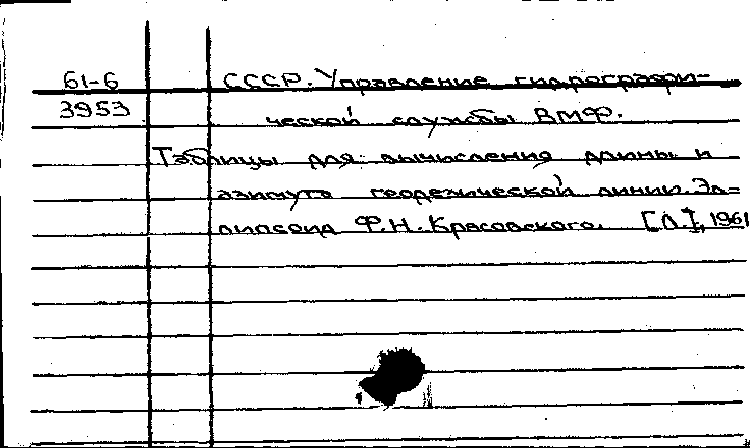 61-6 СССР. Управление гидрографи-
3953 ческой службы ВМФ.
Таблицы для вычисления длины и
азимута геодезической линии. Эл-
липсоид Ф.Н. Красовского. [Л.], 1961